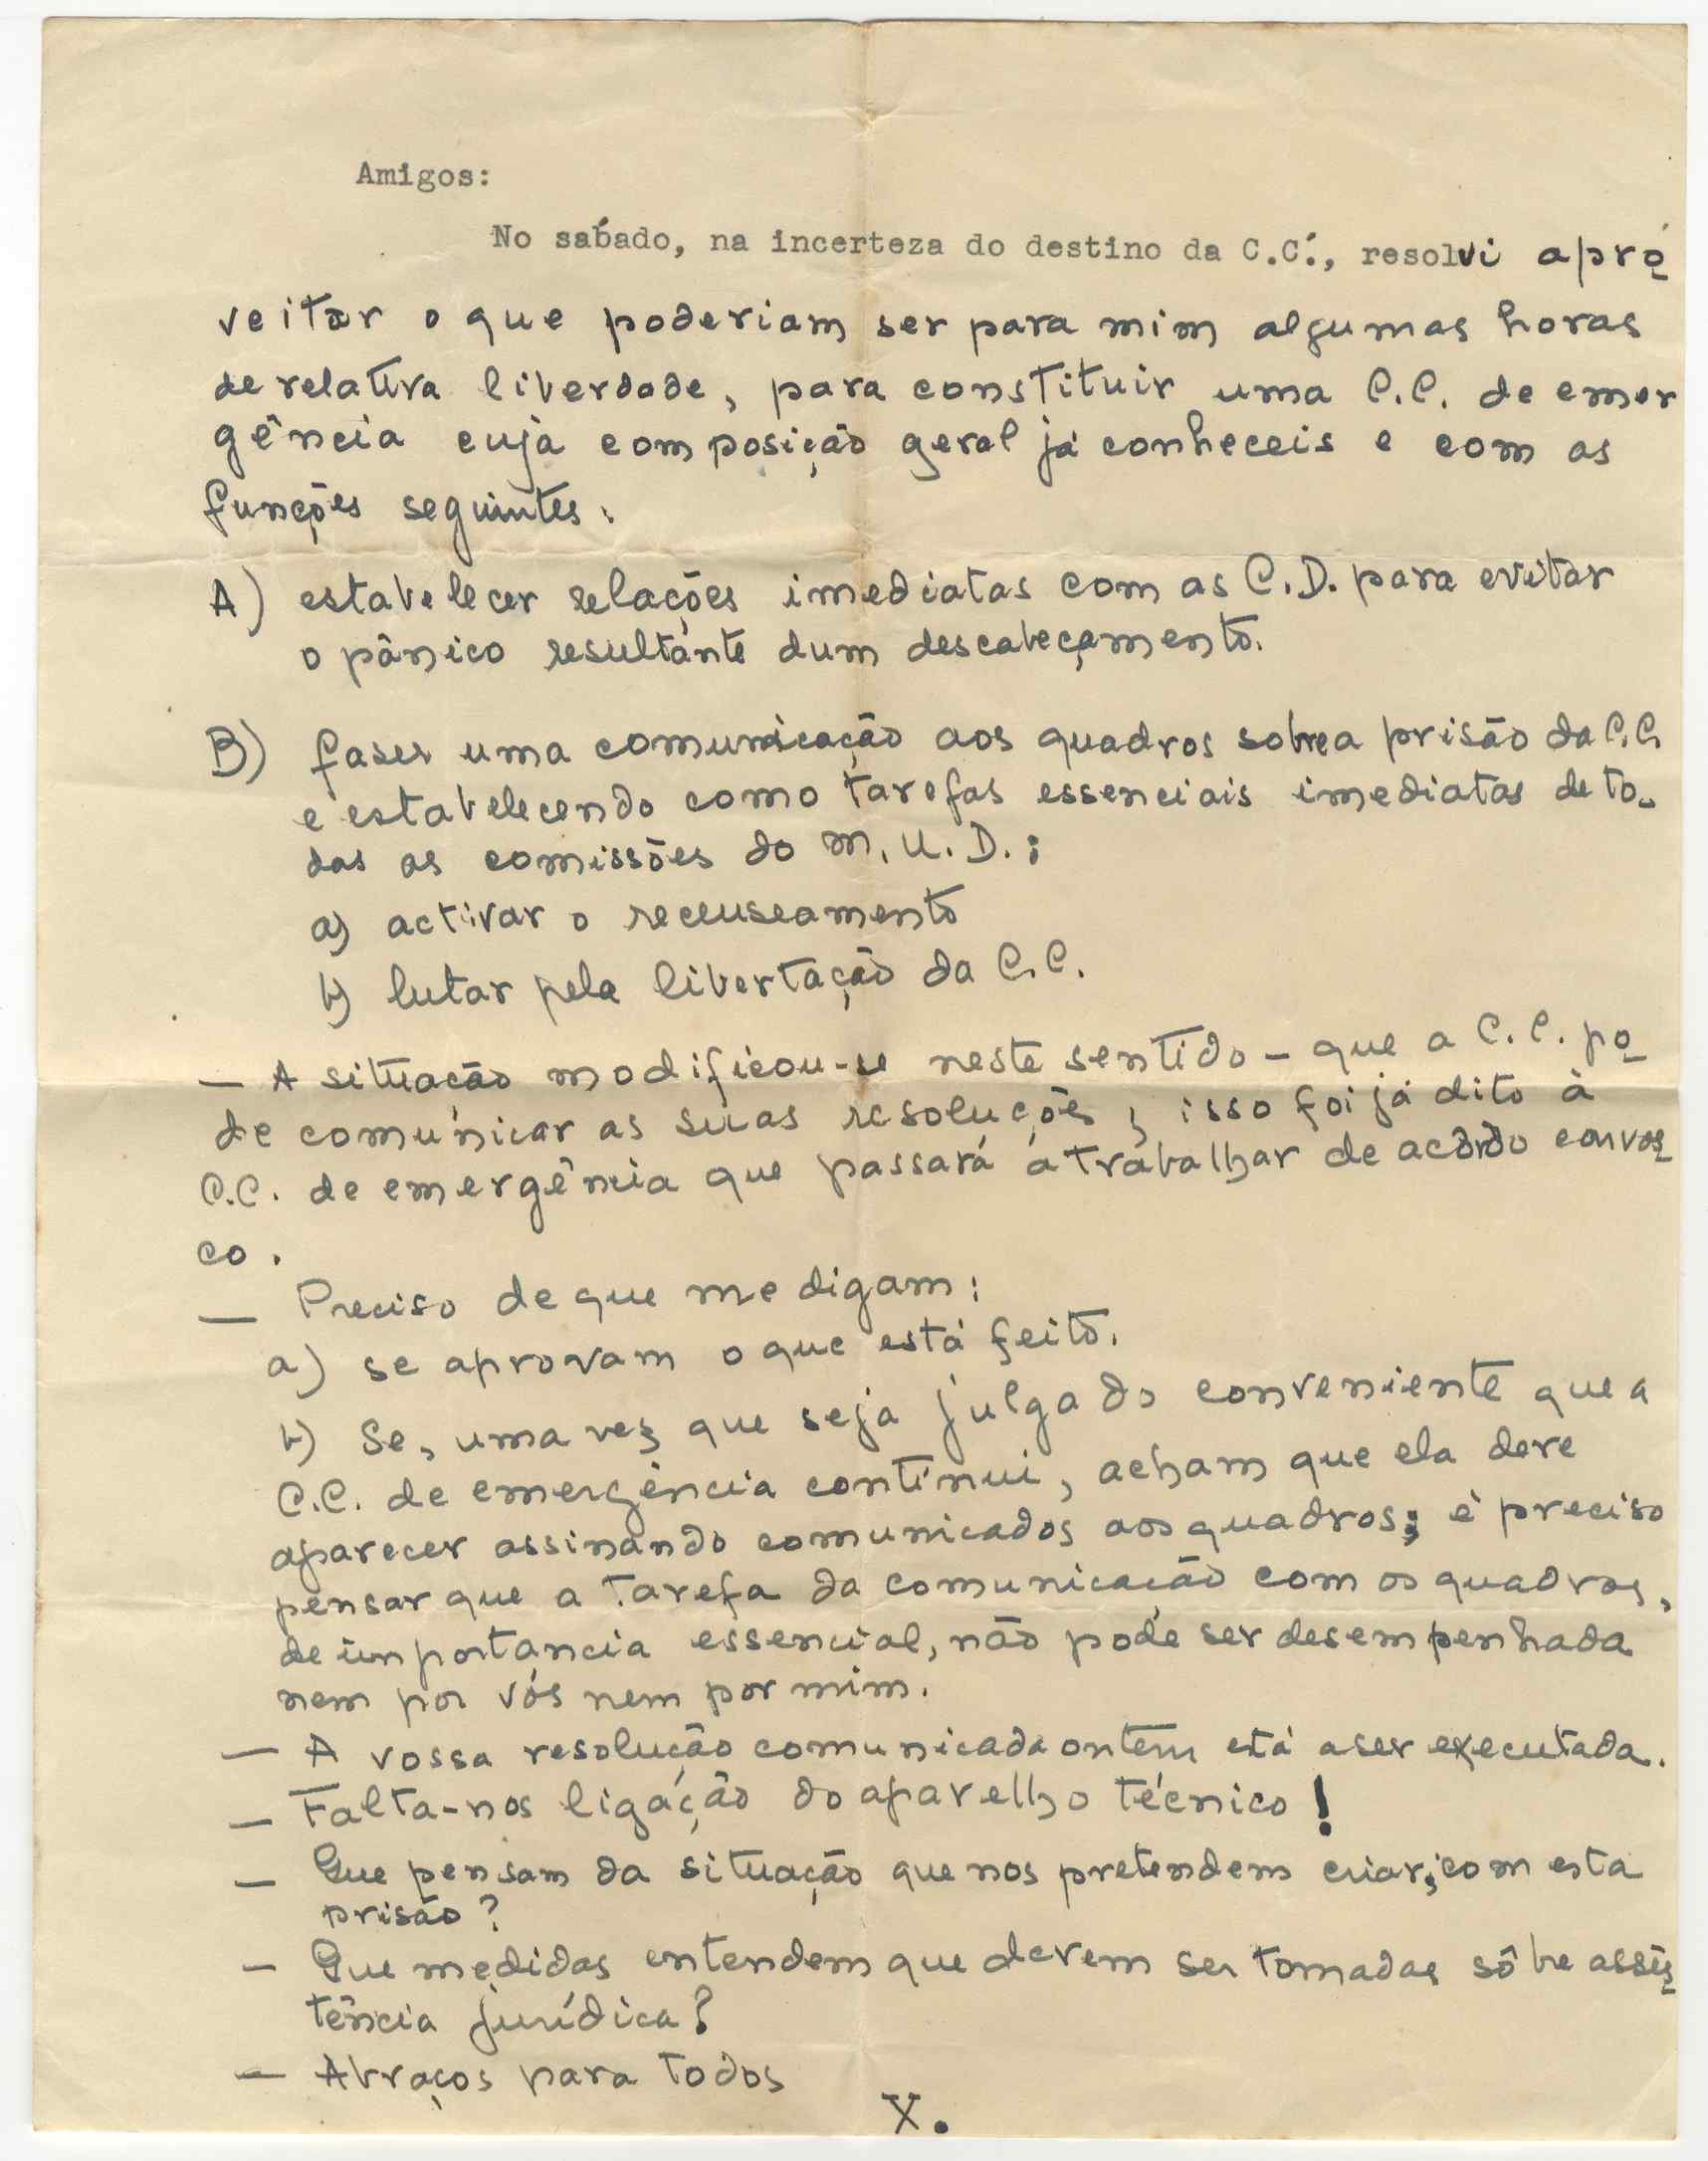 Amigos:
No sábado, na incerteza do destino da C.C., resolvi apro
veitar o que poderiam ser para mim algumas horas
de relativa liberdade, para constituir uma C.C. de emer
gência cuja composição geral já conheceis e com as
funções seguintes:
A) estabelecer relações imediatas com as C.D. para evitar
o pânico resultante dum descabeçamento.
B) faser uma comunicação aos quadros sobre a prisão da C.C.
e estabelecendo como tarefas essenciais imediatas de to-
das as comissões do M.U.D.:
a) activar o recenseamento
b) lutar pela libertação da C.C.
— A situação modificou-se neste sentido - que a C.C. po
de comunicar as suas resoluções; isso foi já dito à
C.C. de emergência que passará a trabalhar de acôrdo convos
co.
— Preciso de que me digam:
a) se aprovam o que está feito.
b) Se, uma vez que seja julgado conveniente que a
C.C. de emergência continui, acham que ela deve
aparecer assinando comunicados aos quadros; é preciso
pensar que a tarefa da comunicação com os quadros,
de importancia essencial, não pode ser desempenhada
nem por vós nem por mim.
— A vossa resolução comunicada ontem está a ser executada.
— Falta-nos ligação do aparelho técnico!
— Que pensam da situação que nos pretendem criar, com esta
prisão?
— Que medidas entendem que devem ser tomadas sôbre assis
tência jurídica?
— Abraços para todos
X.